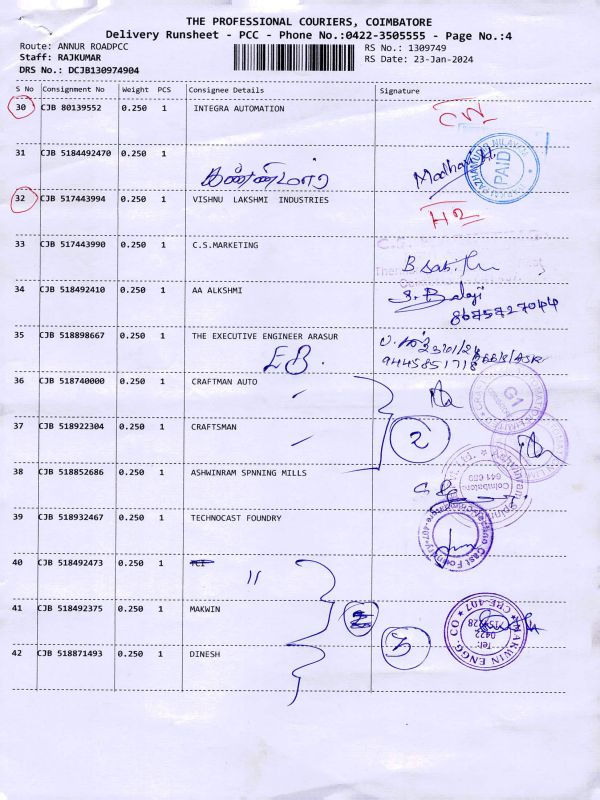 THE PROFESSIONAL COURIERS, COIMBATORE
Delivery Runsheet - PCC - Phone No.:0422-3505555 - Page No.:4
Route: ANNUR ROADPCC
RS No.: 1309749
Staff: RAJKUMAR
RS Date: 23-Jan-2024
DRS No.: DCJB130974904
S No Consignment No Weight PCS Consignee Details Signature
30 CJB 80139552 0.250 1 INTEGRA AUTOMATION
PAID
31 CJB 5184492470 0.250 1
32 CJB 517443994 0.250 1 VISHNU LAKSHMI INDUSTRIES
33 CJB 517443990 0.250 1 C.S.MARKETING
34 CJB 518492410 0.250 1 AA ALKSHMI S. Balaji
8675727044
35 CJB 518898667 0.250 1 THE EXECUTIVE ENGINEER ARASUR
EB. 9445851718
36 CJB 518740000 0.250 1 CRAFTMAN AUTO
G1
37 CJB 518922304 0.250 1 CRAFTSMAN 2
38 CJB 518852686 0.250 1 ASHWINRAM SPNNING MILLS
Coimbatore
39 CJB 518932467 0.250 1 TECHNOCAST FOUNDRY
40 CJB 518492473 0.250 1 "
41 CJB 518492375 0.250 1 MAKWIN
CBE-407
42 CJB 518871493 0.250 1 DINESH 3